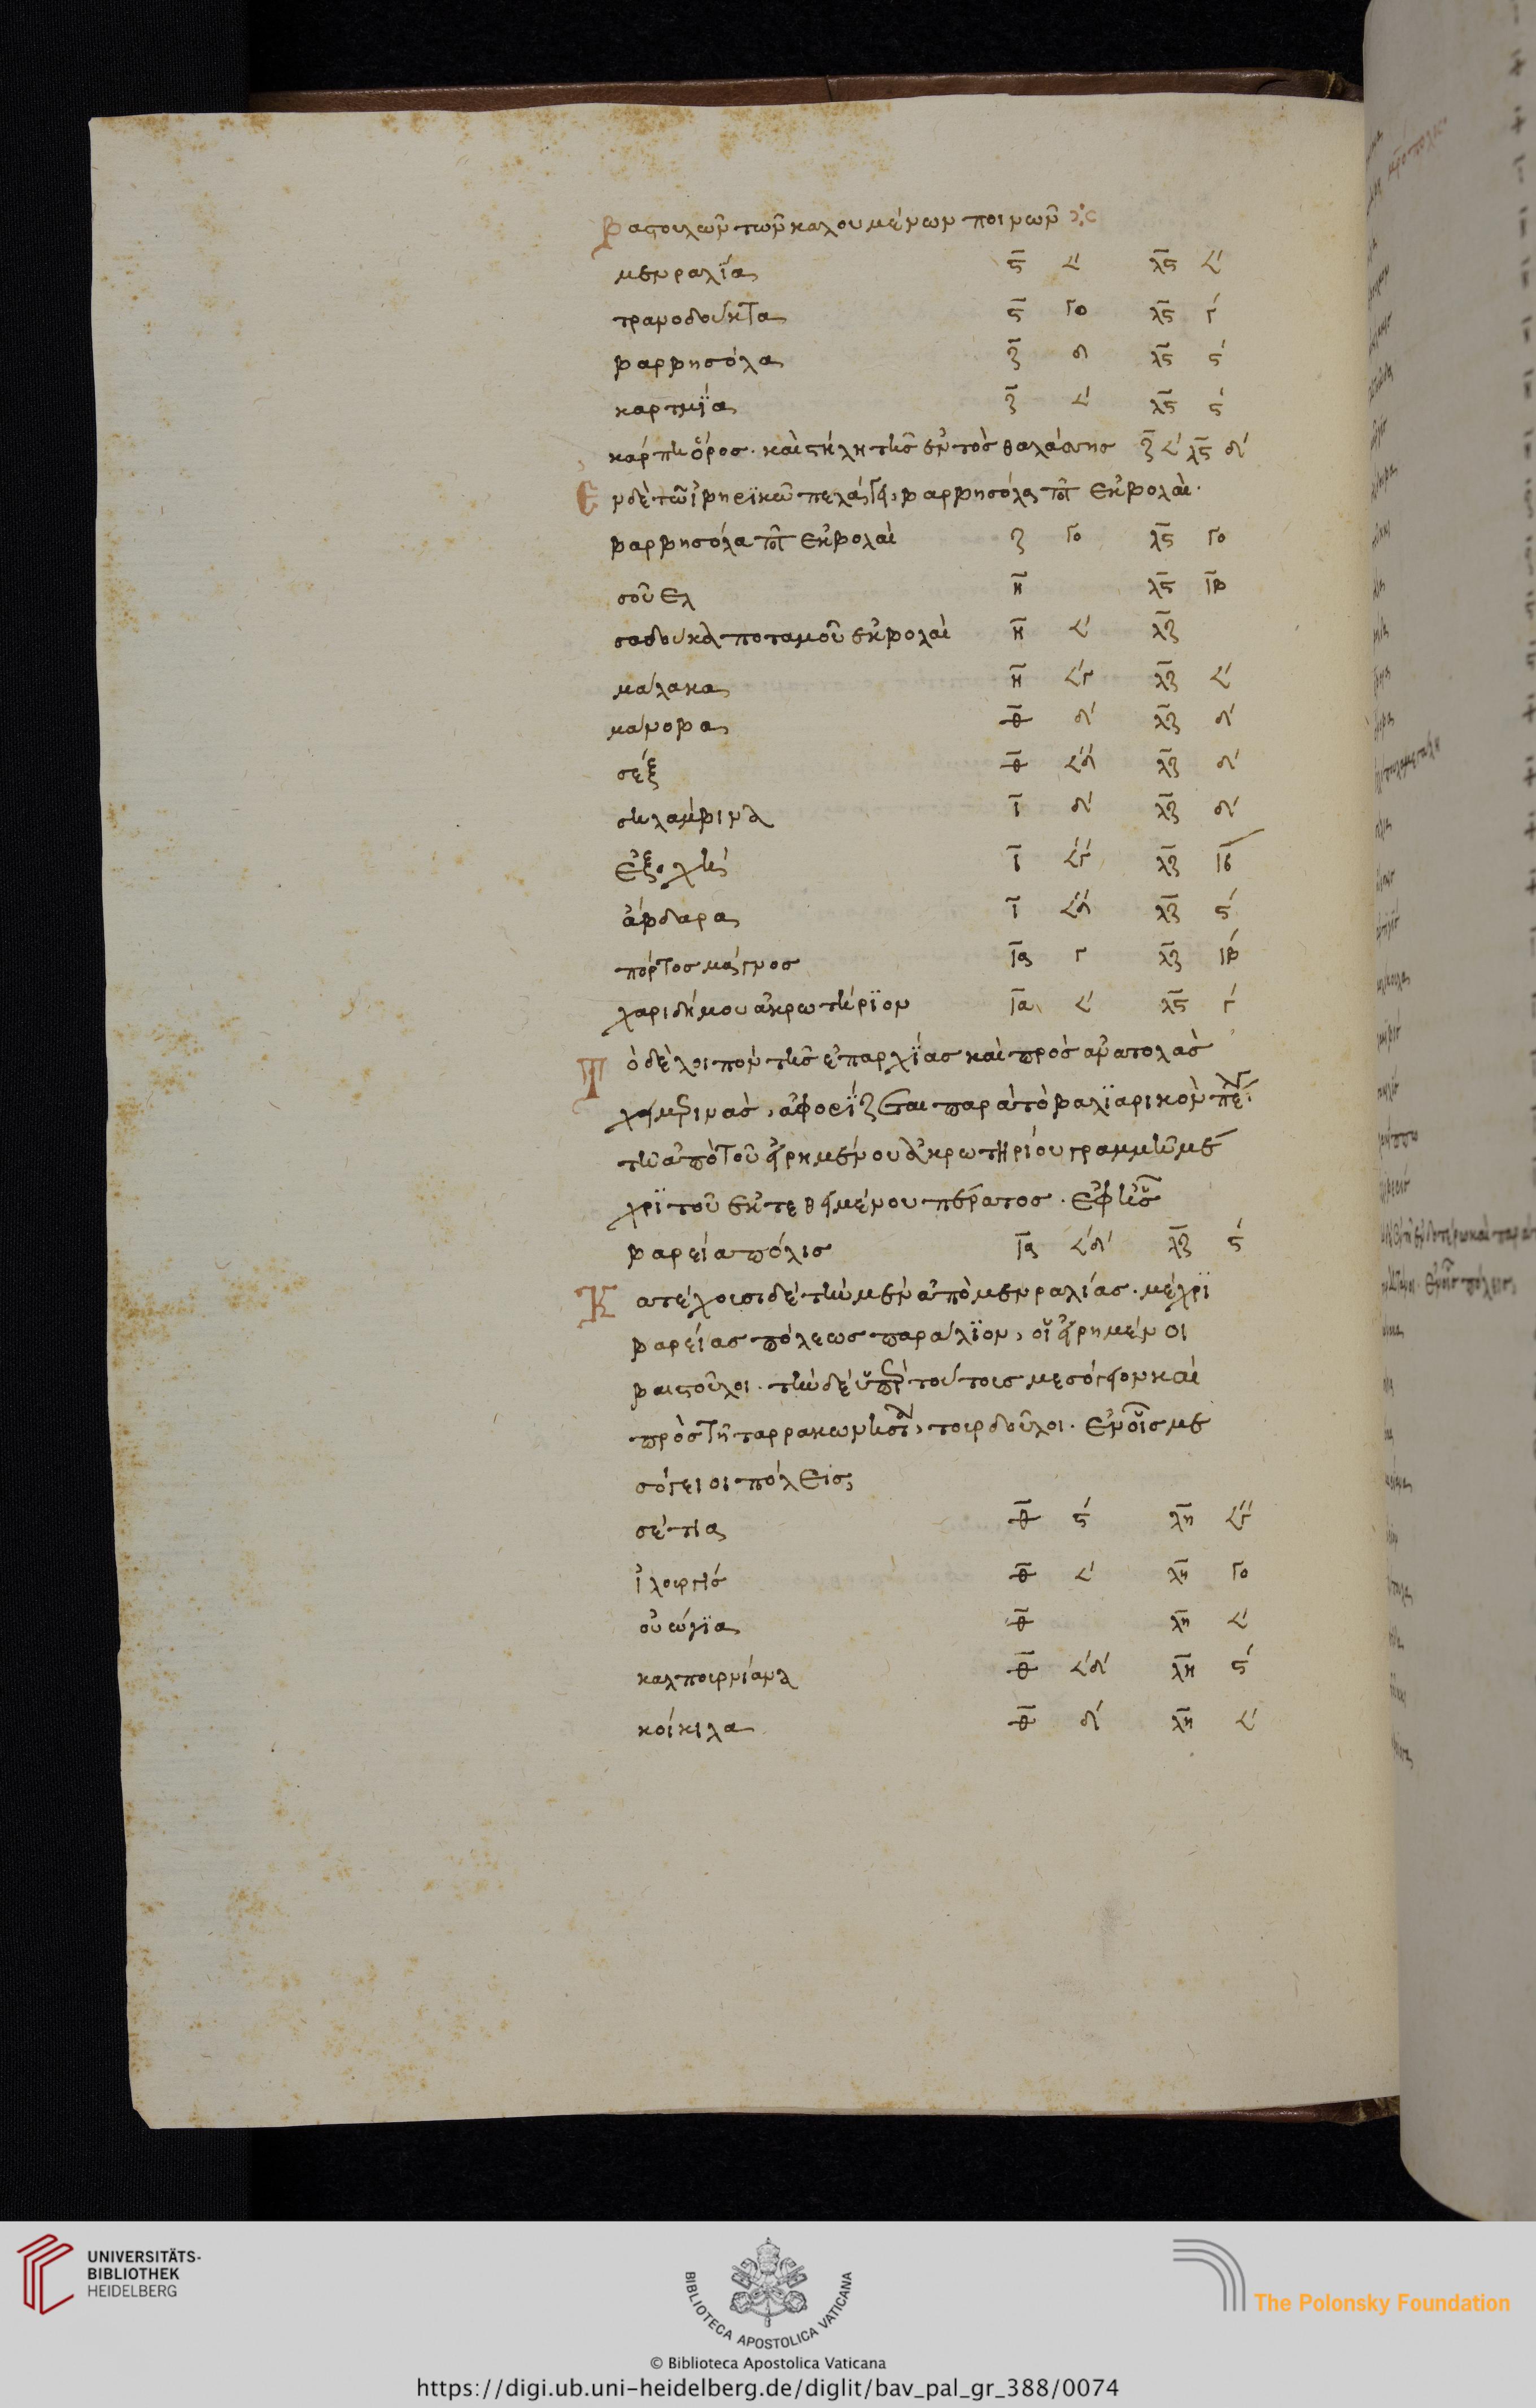 Βαστουλῶν τῶν καλουμένων ποινῶν
μενραλΐα ϛ 𐅵 λϛ 𐅵
τρανσδούκτα ϛ γο λϛ γ
βαρβησόλα ζ δ λϛ ϛ
καρτηΐα ζ 𐅵 λϛ ϛ
κάρπη ὄρος· καὶ στήλη τῆς ἐντὸς θαλάσσης ζ 𐅵 λϛ δ
Ἐν δὲ τῶ ἰβηρϊκῶ πελάγει, βαρβησόλα ποτ ἐκβολαὶ·
βαρβησόλα ποτ ἐκβολαὶ ζ γο λϛ γο
σοῦελ η λϛ ιβ
σαδουκα ποταμοῦ ἐκβολαὶ η 𐅵 λζ
μάλακα η 𐅵γ λζ 𐅵
μάνοβα θ δ λζ δ
σέξ θ 𐅵δ λζ δ
σηλάμβινα ι δ λζ δ
ἐξοχὴ ι 𐅵γ λζ
ἄβδαρα ι 𐅵δ λζ ϛ
πόρτος μάγνος ια γ λζ ιβ
χαριδήμου ἀκρωτήρϊον ια 𐅵 λϛ γ
Τὸ δὲ λοιπὸν τῆς ἐπαρχΐας καὶ πρὸς ἀνατολὰς
χειμερινὰς, ἀφορΐζεται παρὰ τὸ βαλϊαρικὸν πέλ
τῆ ἀπὸ τοῦ εἰρημένου ἀκρωτηρίου γραμμῆ μέ
χρϊ τοῦ ἐκτεθειμένου πέρατος· ἐφ ἧς
βαρεία πόλις ια 𐅵δ λζ ϛ
Κατέχουσι δὲ τὴν μὲν ἀπὸ μενραλίας· μέχρϊ
βαρείας πόλεως παράλϊον, οἱ εἰρημένοι
βαιστοῦλοι· τὴν δὲ ὑπὲρ τούτοις μεσόγειον καὶ
πρὸς τῆ ταρρακωνησία, τουρδοῦλοι· ἐν οἷς με
σόγειοι πόλεις
σέτια θ ϛ λη 𐅵γ
ἰλουργὶς θ 𐅵 λη γο
οὐώγϊα θ λη 𐅵
καλπουρνίανα θ 𐅵δ λη ϛ
κοίκιλα θ δ λη 𐅵
UNIVERSITÄTS-
BIBLIOTHEK
HEIDELBERG
BIBLIOTECA APOSTOLICA VATICANA
The Polonsky Foundation
© Biblioteca Apostolica Vaticana
https://digi.ub.uni-heidelberg.de/diglit/bav_pal_gr_388/0074